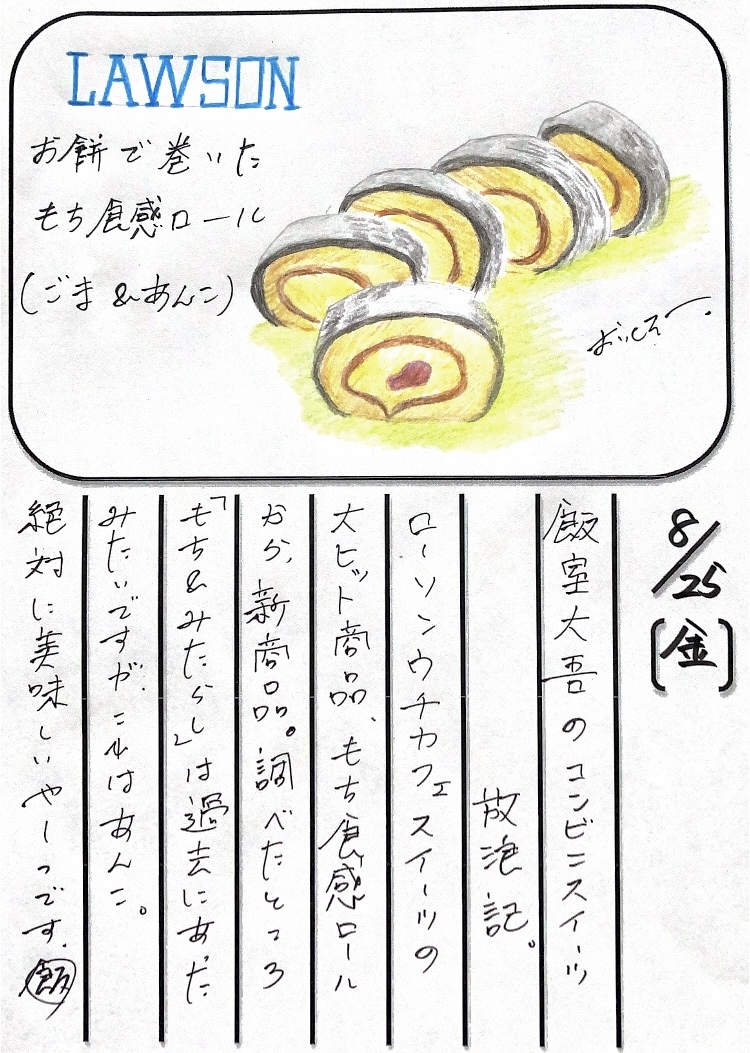 LAWSON
お餅で巻いた
もち食感ロール
(ごま&あんこ)
おいしそ〜.
8/25
[金]
飯室大吾のコンビニスイーツ
放浪記。
ローソンウチカフェスイーツの
大ヒット商品、もち食感ロール
から、新商品。調べたところ
「もち&みたらし」は過去にあった
みたいですが、これはあんこ。
絶対に美味しいやーつです。飯